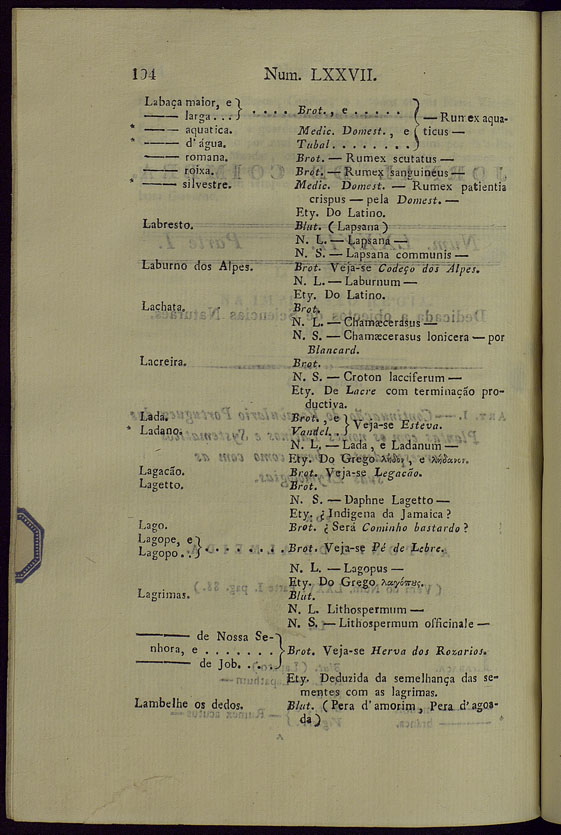 194 Num. LXXVII.
Labaça maior, e } . . . . Brot., e . . . . . }
——— larga . . . } — Rumex aqua-
* ——— aquatica. Medic. Domest., e { ticus —
* ——— d'agua. Tubal . . . . . . . . }
——— romana. Brot. — Rumex scutatus —
——— roixa. Brot. — Rumex sanguineus —
* ——— silvestre. Medic. Domest. — Rumex patientia
crispus — pela Domest. —
Ety. Do Latino.
Labresto. Blut. (Lapsana)
N. L. — Lapsana —
N. S. — Lapsana communis —
Laburno dos Alpes. Brot. Veja-se Codeço dos Alpes.
N. L. — Laburnum —
Ety. Do Latino.
Lachata. Brot.
N. L. — Chamæcerasus —
N. S. — Chamæcerasus lonicera — por
Blancard.
Lacreira. Brot.
N. S. — Croton lacciferum —
Ety. De Lacre com terminação pro-
ductiva.
Lada. Brot., e } Veja-se Esteva.
* Ladano. Vandel. . }
N. L. — Lada, e Ladanum —
Ety. Do Grego λήδον, e λήδανον.
Lagacão. Brot. Veja-se Legacão.
Lagetto. Brot.
N. S. — Daphne Lagetto —
Ety. ¿ Indigena da Jamaica?
Lago. Brot. ¿ Será Cominho bastardo?
Lagope, e }
Lagopo . . } . . . . . . . . Brot. Veja-se Pé de Lebre.
N. L. — Lagopus —
Ety. Do Grego λαγόπυς.
Lagrimas. Blut.
N. L. Lithospermum —
N. S. — Lithospermum officinale —
——— de Nossa Se- }
nhora, e . . . . . . . } Brot. Veja-se Herva dos Rozarios.
——— de Job. . . . . }
Ety. Deduzida da semelhança das se-
mentes com as lagrimas.
Lambelhe os dedos. Blut. (Pera d'amorim, Pera d'agoa-
da)